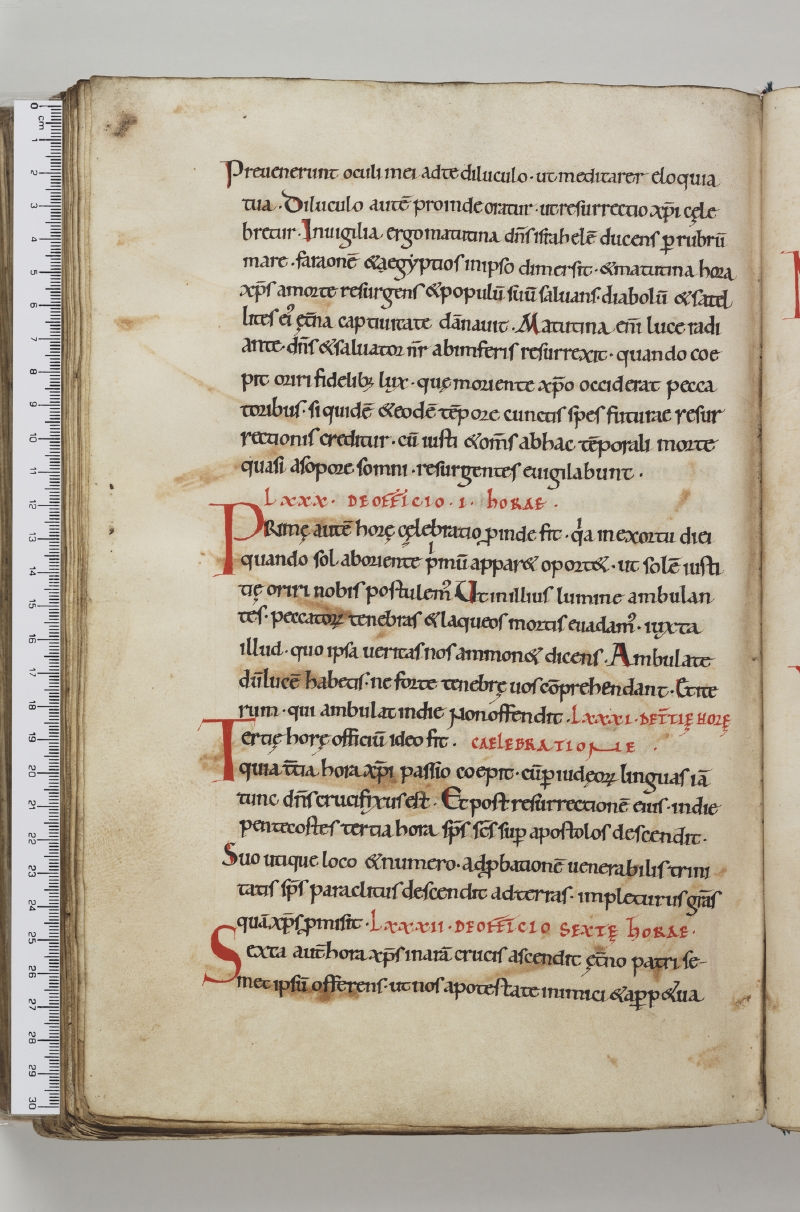 Preuenerunt oculi mei ad te diluculo · ut meditarer eloquia
tua · Diluculo autē proinde oratur · ut resurrectio xp̄i cęle
bretur · In uigilia ergo matutina dn̄s israhelē ducens ꝑ rubrū
mare · faraonē &aegyptios in ipso dimersit · &matutina hora
xp̄s a morte resurgens &populū suū saluans · diabolū &satel
lites ei᾽ ęt̄na captiuitate dānauit · Matutina em̄ luce radi
ante · dn̄s &saluator nr̄ ab inferis resurrexit · quando coe
pit oriri fidelib; lux · quę moriente xp̄o occiderat pecca
toribus · siquidē &eodē tēpore cunctis spes futurae resur
rectionis creditur · cū iusti &om̄s ab hac tēporali morte
quasi a sopore somni · resurgentes euigilabunt ·
Lxxx · DE OFFICIO · I · HORAE ·
PRimę autē horę cęlebratio ꝓinde fit · q̇a in exortu diei
quando sol ab oriente pͥmū appar& oport& · ut solē iusti
tię oriri nobis postulem᾽ Ut in illius lumine ambulan
tes · peccatoꝝ tenebras &laqueos mortis euadam᾽ · iuxta
illud · quo ipsa ueritas nos ammon& dicens · Ambulate
dū lucē habetis · ne forte tenebrę uos cōprehendant · Et ite
rum · qui ambulat in die non offendit · Lxxxi · DE TT̄IĘ HORĘ
Tertię horę officiū ideo fit · CAELEBRATIONE ·
quia tt̄ia hora xp̄i passio coepit · cū ꝑ iudęoꝝ linguas iā
tunc dn̄s crucifixus est · Et post resurrectionē eius · in die
pentecostes tertia hora sp̄s sc̄s sup̄ apostolos descendit ·
Suo utique loco &numero · ad ꝓbationē uenerabilis trini
tatis sp̄s paraclitus descendit ad terras · impleturus grā̄s
quā xp̄s ꝓmisit · Lxxxii · DE OFFICIO SEXTĘ HORAE ·
Sexta aut̄ hora xp̄s in arā crucis ascendit ęt̄no patri se-
met ipsū offerens · ut nos a potestate inimici &a ꝑp&ua